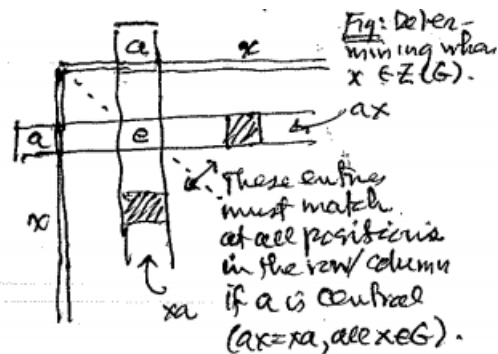 a
x
Fig: Deter-
mining when
x ∈ Z(G).
a
e
ax
x
xa
These entries
must match
at all positions
in the row/column
if a is central
(ax=xa, all x∈G).